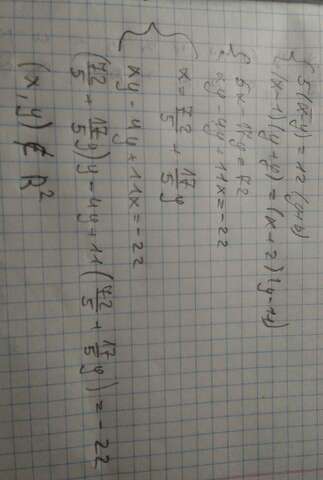 { 5(x-y) = 12(y+6)
(x-1)(y+y) = (x+2)(y-11)
{ 5x - 17y = 72
xy - 4y + 11x = -22
{ x = 72/5 + 17/5 y
xy - 4y + 11x = -22
(72/5 + 17/5 y)y - 4y + 11(72/5 + 17/5 y) = -22
(x, y) ∉ R²